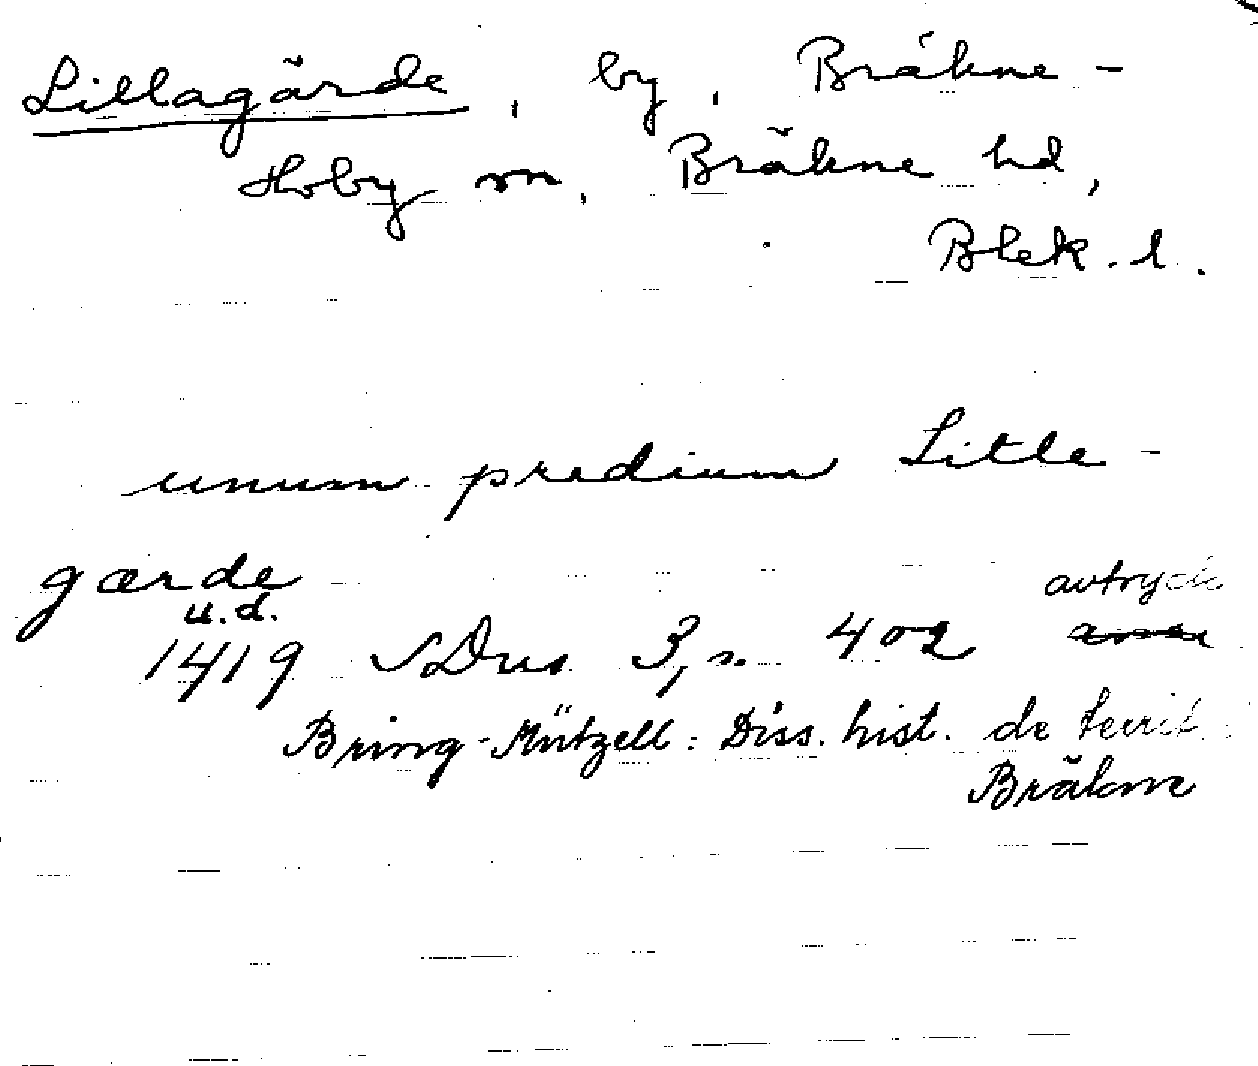 Lillagärde, by, Bräkne-
Hoby sn, Bräkne hd,
Blek. l.
unum predium Litle-
gærde
u.d. avtryck
1419 SDns 3, s. 402
Bring-Mützell: Diss. hist. de territ.
Bräkne